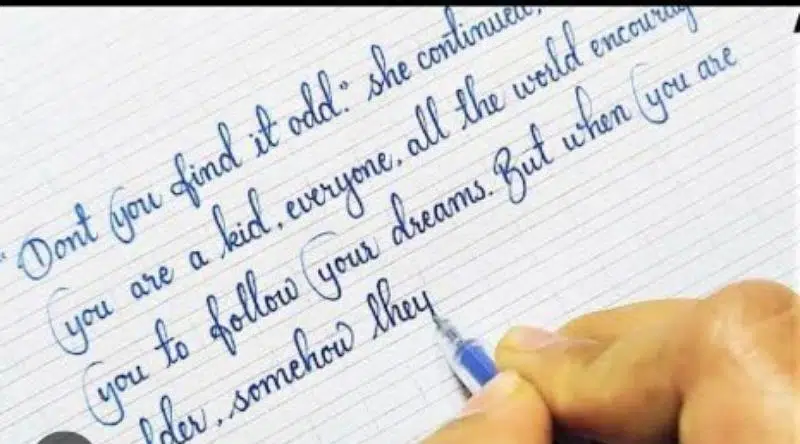 "Dont you find it odd." she continued,
you are a kid, everyone, all the world
you to follow your dreams. But when you are
somehow they